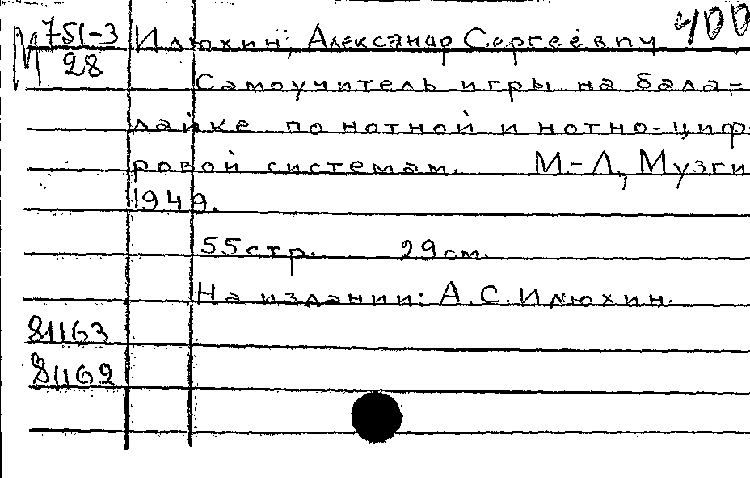 М 751-3/28 Илюхин, Александр Сергеевич 400
Самоучитель игры на бала-
лайке по нотной и нотно-циф-
ровой системам. М.-Л., Музги
1949.
55стр. 29см.
На издании: А.С.Илюхин.
81163
81162